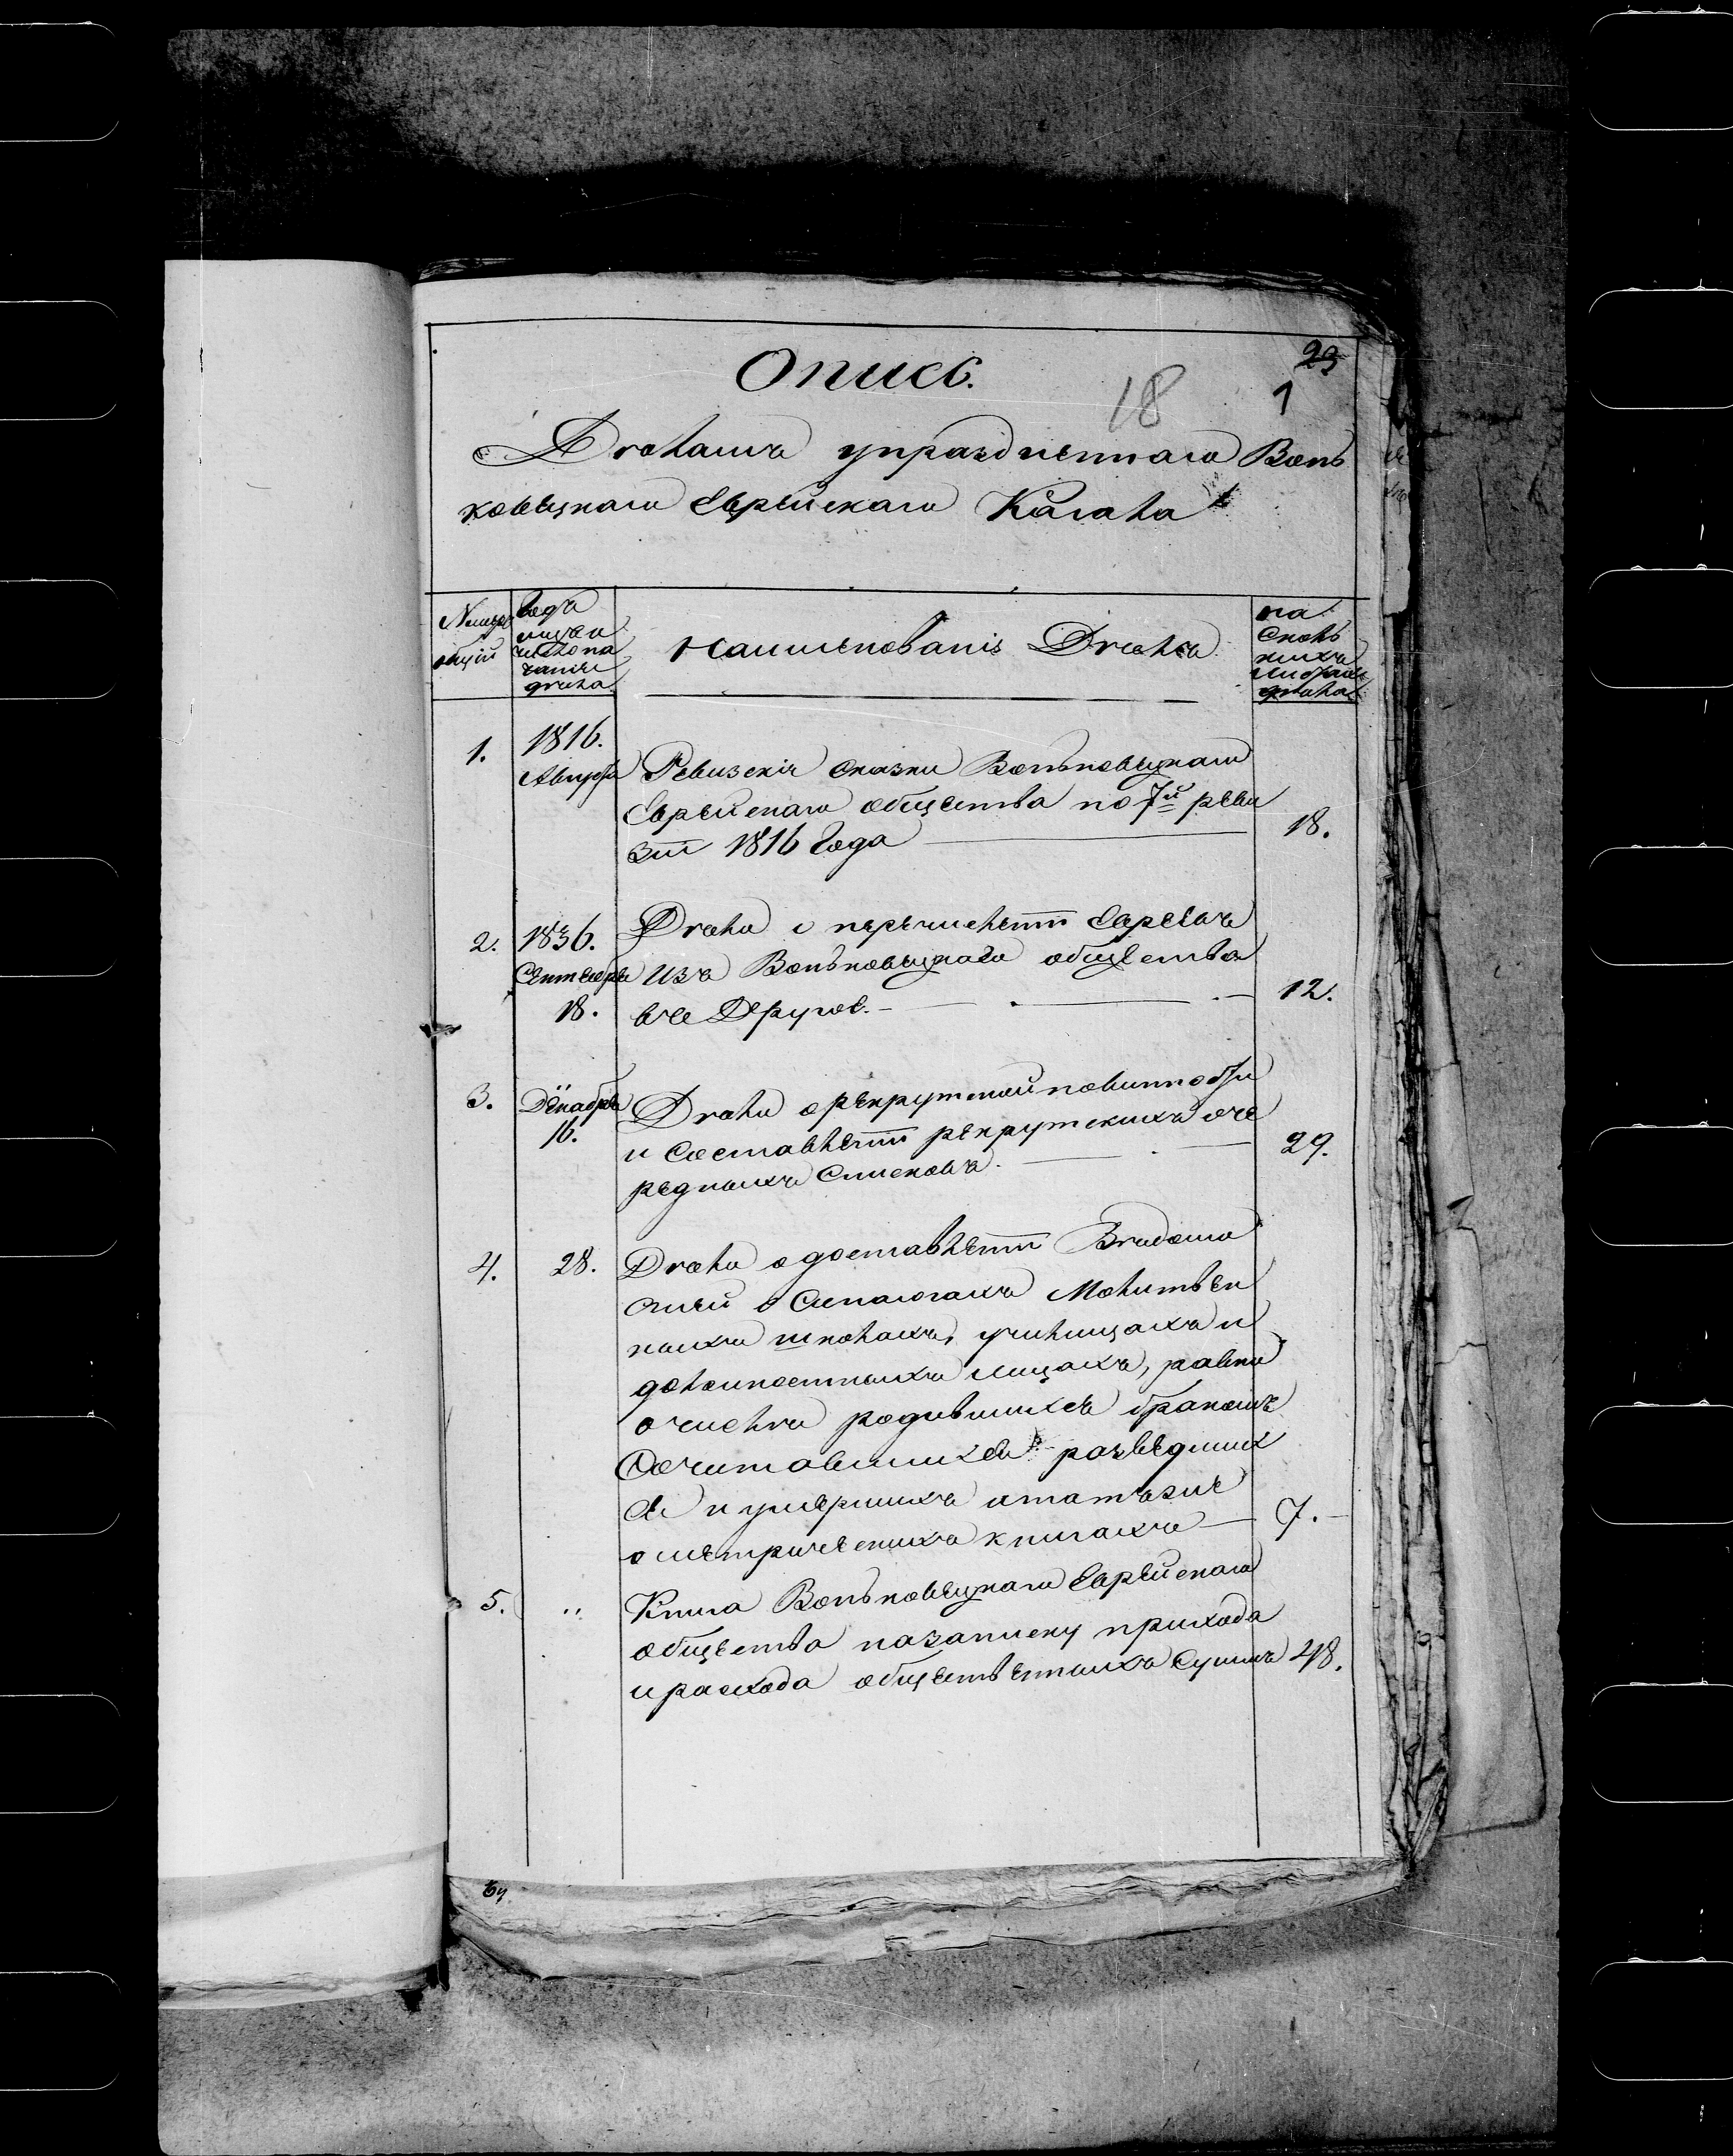 Опись.
23
18
1
Дѣламъ упраздненнаго Вонь
ковецкаго Еврейскаго Кагала
Номеръ
общій
Годъ
мѣсяц
и число на
чатія
дѣла
Наименованіе Дѣлъ
на
сколь
кихъ
листах
дѣла
1.
1816.
Августа
Ревизскія сказки Воньковецкаго
Еврейскаго общества по 7й реви
зіи 1816 Года
18.
2.
1836.
Сентября
18.
Дѣло о перечисленіи Евреевъ
изъ Воньковецкаго общества
въ Другое.
12.
3.
Декабря
16.
Дѣло о рекрутской повинности
и составленіи рекрутскихъ оче
редныхъ списковъ.
29.
4.
28.
Дѣло о доставленіи Вѣдомо
стей о Синагогахъ Молитвен
ныхъ школахъ, училищахъ и
должностныхъ лицахъ, равно
о числѣ родившихся бракомъ
Сочитавшихся разведших
ся и умершихъ и также
о метрическихъ книгахъ
7.
5.
"
Книга Воньковецкаго Еврейскаго
общества на записку прихода
и расхода общественныхъ Суммъ
48.